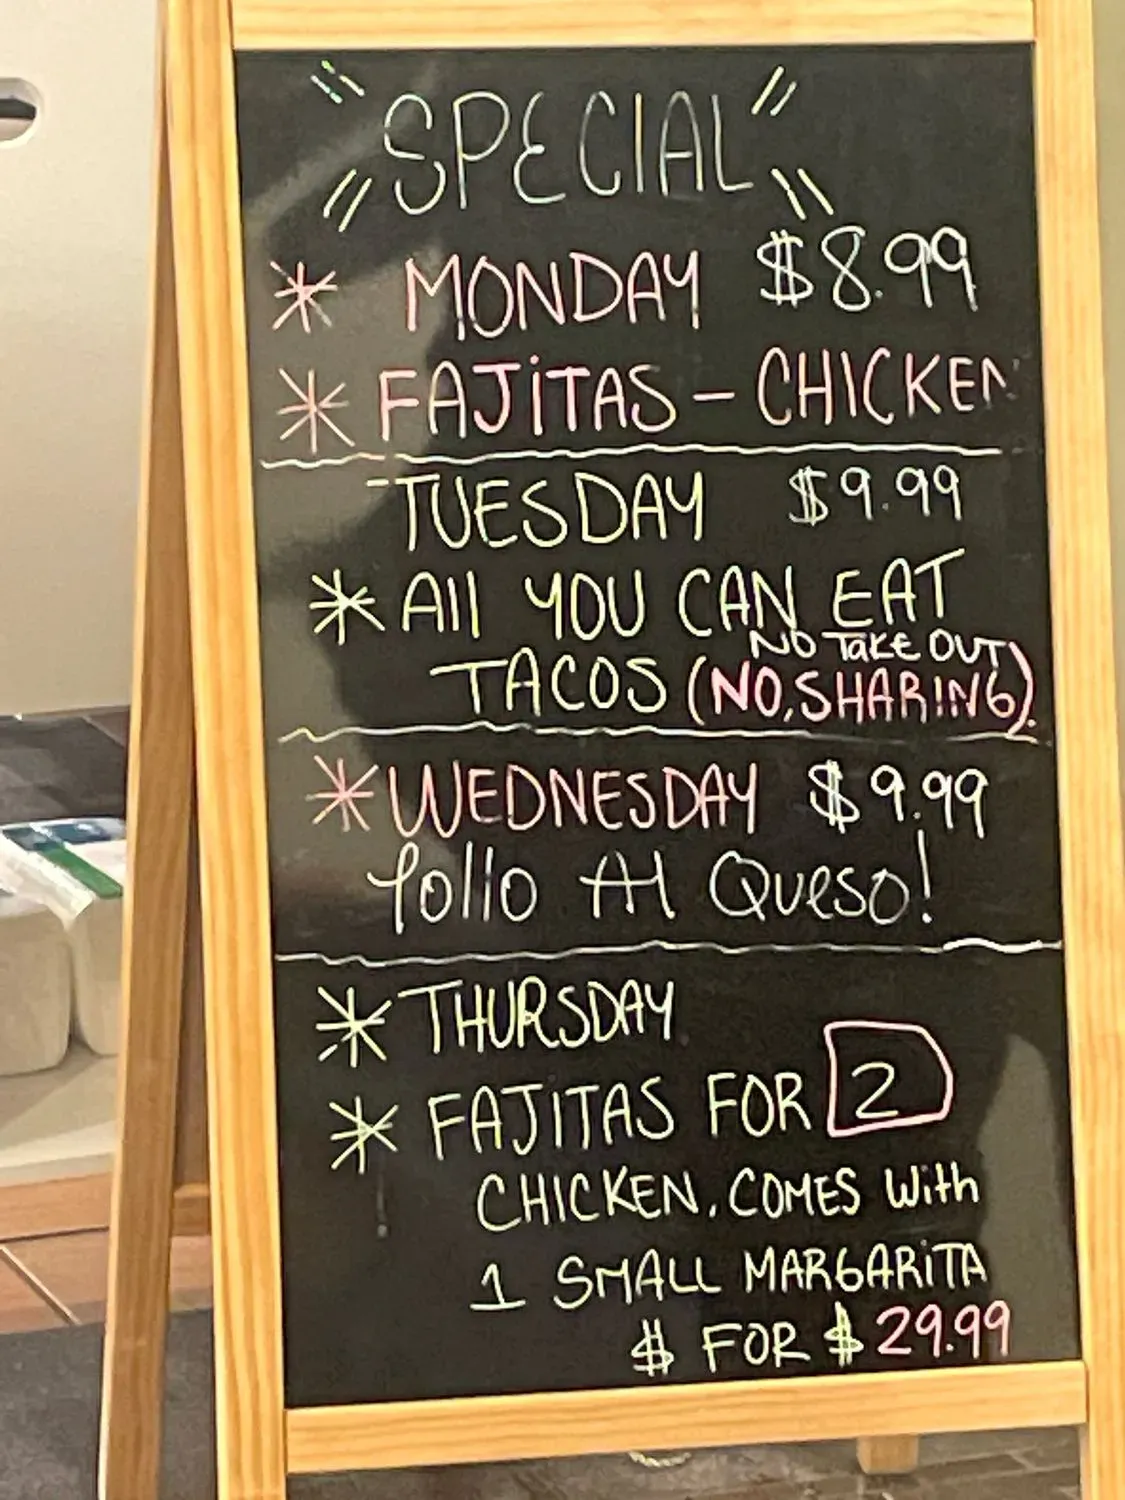 "SPECIAL"
* MONDAY $8.99
* FAJiTAS - CHICKEN
TUESDAY $9.99
* All YOU CAN EAT
NO TaKE OUT
TACOS (NO, SHARING).
* WEDNESDAY $9.99
Pollo Al Queso!
* THURSDAY
* FAJiTAS FOR 2
CHICKEN. COMES With
1 SMALL MARGARiTA
$ FOR $29.99